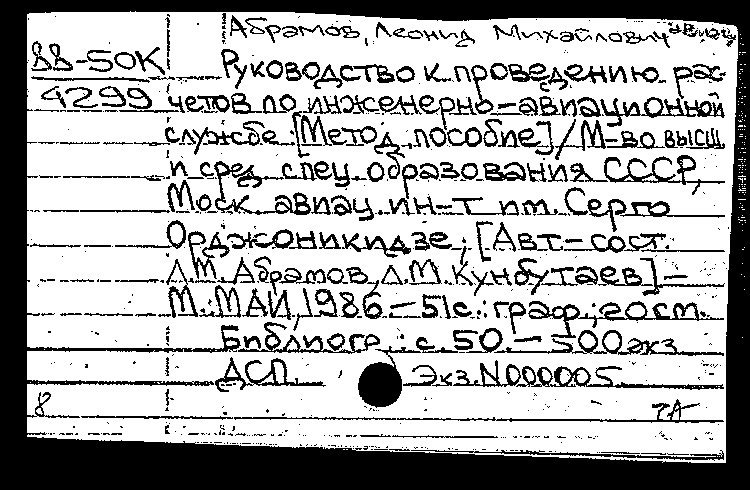 Абрамов, Леонид Михайлович
88-50К Руководство к проведению рас-
4299 четов по инженерно-авиационной
службе: [Метод. пособие] / М-во высш.
и сред. спец. образования СССР,
Моск. авиац. ин-т им. Серго
Орджоникидзе; [Авт.-сост.
Л.М. Абрамов, Л.М. Кунбутаев] –
М.: МАИ, 1986. – 51 с.: граф.; 20 см.
Библиогр.: с. 50. – 500 экз.
ДСП. Экз. N000005.
8